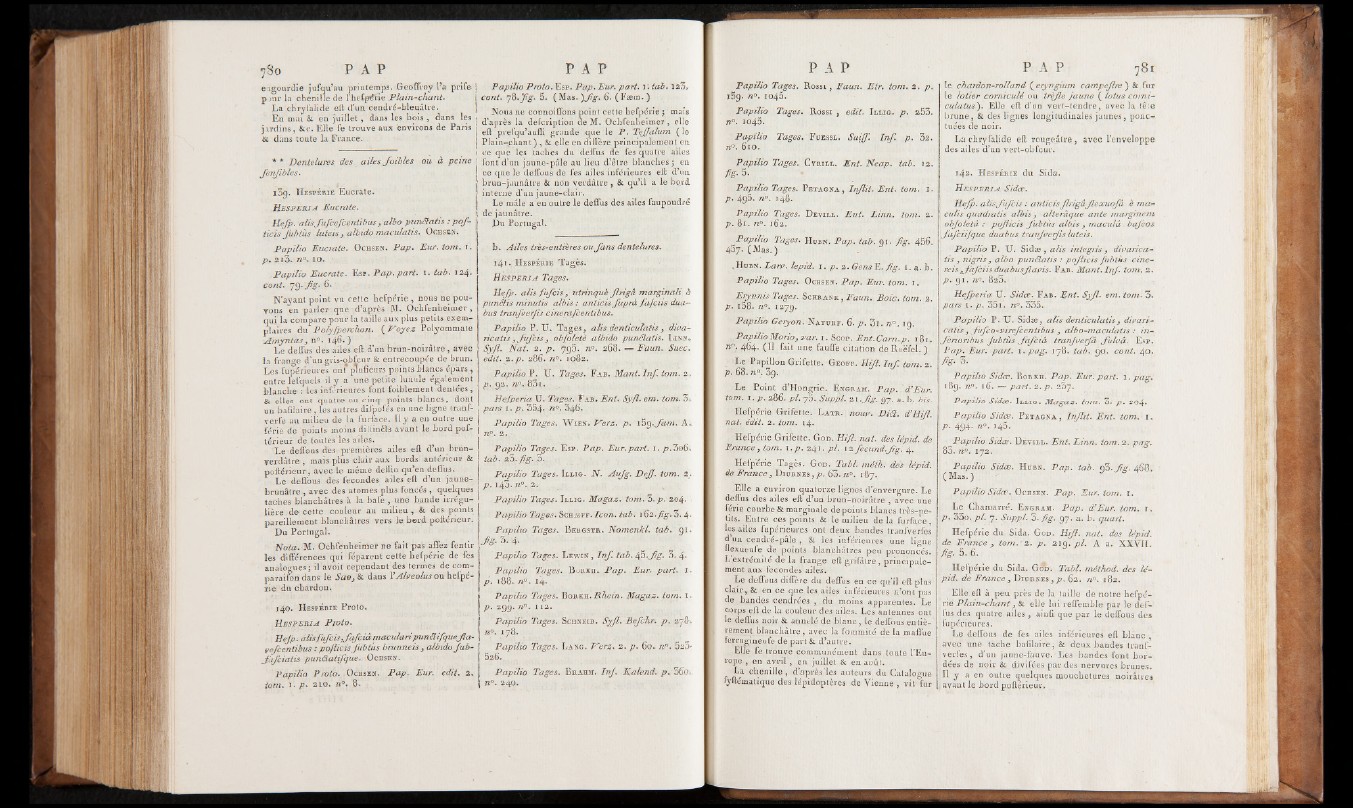 780 P A P
engourdie jusqu'au printemps. Geoffroy l'a prise
pour la chenille de l'hespérie Plain-chant.
La chrysalide est d'un cendré-bleuâtre.
En mai & en juillet, dans les bois, dans les
jardins, &c. Elle se trouve aux environs de Paris
& dans toute la France.
** Dentelures des ailes foibles ou à peine
sensibles.
139. HESPÉRIE Eucrate.
HESPERIA Eucrate.
Hesp. alis fuscescentibus, albo punctatis : pos-
ticis subtùs luteis, albido maculatis. OCHSEN.
Papilio Eucrate. OCHSEN. Pap. Eur. tom. 1.
p. 213. n°. 10.
Papilio Eucrate. ESP. Pap. part. 1. tab. 124.
cont. 79. fig. 6.
N'ayant point vu cette hespérie, nous ne pou-
vons en parler que d'après M. Ochsenheimer,
qui la compare pour la taille aux plus petits exem-
plaires du Polysperchon. (Voyez Polyommate
Amyntas, n°. 146.)
Le dessus des ailes est d'un brun-noirâtre, avec
la frange d'un gris-obscur & entrecoupée de brun.
Les supérieures ont plusieurs points blancs épars,
entre lesquels il y a une petite bande également
blanche : les inférieures sont foiblement dentées,
& elles ont quatre ou cinq points blancs, dont
un basilaire, les autres disposés en une ligne trans-
verse au milieu de la surface. Il y a en outre une
série de points moins distincts avant le bord pos-
térieur de toutes les ailes.
Le dessous des premières ailes est d'un brun-
verdâtre, mais plus clair aux bords antérieur &
postérieur, avec le même dessin qu'en dessus.
Le dessous des secondes ailes est d'un jaune-
brunâtre, avec des atomes plus foncés, quelques
taches blanchâtres à la base, une bande irrégu-
lière de cette couleur au milieu, & des points
pareillement blanchâtres vers le bord postérieur.
Du Portugal.
Nota. M. Ochsenheimer ne fait pas assez sentir
les différences qui séparent cette hespérie de ses
analogues; il avoit cependant des termes de com-
paraison dans le Sao, & dans l'Alveolus ou hespé-
rie du chardon.
140. HESPÉRIE Proto.
HESPERIA Proto.
Hesp. alis fuscis, fasciâ maculari punctisque fla-
vescentibus : posticis subtùs brunneis, albido sub-
fasciatis punctatisque. OCHSEN.
Papilio Proto. OCHSEN. Pap. Eur. edit. 2.
tom. 1. p. 210. n°. 8.
P A P
Papilio Proto. ESP. Pap. Eur. part. 1. tab. 123,
cont. 78. fig. 5. (Mas.) fig. 6. (Fæm.)
Nous ne connoissons point cette hespérie; mais
d'après la description de M. Ochsenheimer, elle
est presqu'aussi grande que le P. Tessalum (le
Plain-chant), & elle en diffère principalement en
ce que les taches du dessus de ses quatre ailes
sont d'un jaune-pâle au lieu d'être blanches; en
ce que le dessous de ses ailes inférieures est d'un
brun-jaunâtre & non verdâtre, & qu'il a le bord
interne d'un jaune-clair.
Le mâle a en outre le dessus des ailes saupoudré
de jaunâtre.
Du Portugal.
b. Ailes très-entières ou sans dentelures.
141. HESPÉRIE Tagès.
HESPERIA Tages.
Hesp. alis fuscis, utrinquè strigâ marginali è
punctis minutis albis : anticis suprà fasciis dua-
bus transversis cinerascentibus.
Papilio P. U. Tages, alis denticulatis, diva-
ricatis, fuscis, obsoletè albido punctatis. LINN.
Syst. Nat. 2. p. 795. n°. 268. — Faun. Suec.
edit. 2. p. 286. n°. 1082.
Papilio P. U. Tages. FAB. Mant. Inf. tom. 2.
p. 92. n°. 831.
Hesperia U. Tages. FAB. Ent. Syst. em. tom. 3.
pars 1. p. 354. n°. 346.
Papilio Tages. WIEN. Verz. p. 159. fam. A.
n°. 2.
Papilio Tages. ESP. Pap. Eur. part. 1. p. 306.
tab. 23. fig. 3.
Papilio Tages. ILLIG. N. Ausg. Dess. tom. 2.
p. 143. n°. 2.
Papilio Tages. ILLIG. Magaz. tom. 3. p. 204.
Papilio Tages. SCHÆFF. Icon. tab. 162. fig. 3. 4.
Papilio Tages. BERGSTR. Nomenkl. tab. 91.
fig. 3. 4.
Papilio Tages. LEWIN, Inf. tab. 45. fig. 3. 4.
Papilio Tages. BORKH. Pap. Eur. part. 1.
p. 188. n°. 14.
Papilio Tages. BORKH. Rhein. Magaz. tom. 1.
p. 299. n°. 112.
Papilio Tages. SCHNEID. Syst. Beschr. p. 278.
n°. 178.
Papilio Tages. LANG. Verz. 2. p. 60. n°. 523-
526.
Papilio Tages. BRAHM. Inf. Kalend. p. 360.
n°. 249.
P A P
Papilio Tages. ROSSI, Faun. Etr. tom. 2. p.
159. n°. 1045.
Papilio Tages. ROSSI, edit. ILLIG. p. 253.
n°. 1045.
Papilio Tages. FUESSL. Suiss. Inf. p. 32.
n°. 610.
Papilio Tages. CYRILL. Ent. Neap. tab. 12.
fig. 5.
Papilio Tages. PETAGNA, Instit. Ent. tom. 1.
p. 495. n°. 148.
Papilio Tages. DEVILL. Ent. Linn. tom. 2.
p. 81. n°. 162.
Papilio Tages. HUBN. Pap. tab. 91. fig. 456.
457. (Mas.)
HUBN. Larv. lepid. 1. p. 2. Gens E. fig. 1. a. b.
Papilio Tages. OCHSEN. Pap. Eur. tom. 1.
Erynnis Tages. SCHRANK, Faun. Boic. tom. 2.
p. 158. n°. 1279.
Papilio Geryon. NATURF. 6. p. 31. n°. 19.
Papilio Morio, var. 1. SCOP. Ent. Carn. p. 181.
n°. 464. (Il fait une fausse citation de Roësel.)
Le Papillon Grisette. GEOFF. Hist. Inf. tom. 2.
p. 68. n°. 39.
Le Point d'Hongrie. ENGRAM. Pap. d'Eur.
tom. 1. p. 286. pl. 73. Suppl. 21. fig. 97. a. b. bis.
Hespérie Grisette. LATR. nouv. Dict. d'Hist.
nat. édit. 2. tom. 14.
Hespérie Grisette. GOD. Hist. nat. des lépid. de
France, tom. 1. p. 241. pl. 12 secund. fig. 4.
Hespérie Tagès. GOD. Tabl. méth. des lépid.
de France, DIURNES, p. 63. n°. 187.
Elle a environ quatorze lignes d'envergure. Le
dessus des ailes est d'un brun-noirâtre, avec une
série courbe & marginale de points blancs très-pe-
tits. Entre ces points & le milieu de la surface,
les ailes supérieures ont deux bandes transverses
d'un cendré-pâle, & les inférieures une ligne
flexueuse de points blanchâtres peu prononcés.
L'extrémité de la frange est grisâtre, principale-
ment aux secondes ailes.
Le dessous diffère du dessus en ce qu'il est plus
clair, & en ce que les ailes inférieures n'ont pas
de bandes cendrées, du moins apparentes. Le
corps est de la couleur des ailes. Les antennes ont
le dessus noir & annelé de blanc, le dessous entiè-
rement blanchâtre, avec la sommité de la massue
ferrugineuse de part & d'autre.
Elle se trouve communément dans toute l'Eu-
rope, en avril, en juillet & en août.
La chenille, d'après les auteurs du Catalogue
systématique des lépidoptères de Vienne, vit sur
P A P 781
le chardon-rolland (eryngium campestre) & sur
le lotier corniculé ou trèfle jaune (lotus corni-
culatus). Elle est d'un vert-tendre, avec la tête
brune, & des lignes longitudinales jaunes, ponc-
tuées de noir.
La chrysalide est rougeâtre, avec l'enveloppe
des ailes d'un vert-obscur.
142. HESPÉRIE du Sida.
HESPERIA Sidæ.
Hesp. alis fuscis : anticis strigâ flexuosâ è ma-
culis quadratis albis, alterâque ante marginem
obsoletâ : posticis subtùs albis, maculâ baseos
fasciisque duabus transversis luteis.
Papilio P. U. Sidæ, alis integris, divarica-
tis, nigris, albo punctatis : posticis subtùs cine-
reis, fasciis duabus flavis. FAB. Mant. Inf. tom. 2.
p. 91. n°. 823.
Hesperia U. Sidæ. FAB. Ent. Syst. em. tom. 3.
pars 1. p. 351. n°. 335.
Papilio P. U. Sidæ, alis denticulatis, divari-
catis, fusco-virescentibus, albo-maculatis : in-
ferioribus subtùs fasciâ transversâ fulvâ. ESP.
Pap. Eur. part. 1. pag. 178. tab. 90. cont. 40.
fig. 3.
Papilio Sidæ. BORKH. Pap. Eur. part. 1. pag.
189. n°. 16. — part. 2. p. 237.
Papilio Sidæ. ILLIG. Magaz. tom. 3. p. 204.
Papilio Sidæ. PETAGNA, Instit. Ent. tom. 1.
p. 494. n°. 145.
Papilio Sidæ. DEVILL. Ent. Linn. tom. 2. pag.
83. n°. 172.
Papilio Sidæ. HUBN. Pap. tab. 93. fig. 468.
(Mas.)
Papilio Sidæ. OCHSEN. Pap. Eur. tom. 1.
Le Chamarré. ENGRAM. Pap. d'Eur. tom. 1.
p. 330. pl. 7. Suppl. 3. fig. 97. a. b. quart.
Hespérie du Sida. GOD. Hist. nat. des lépid.
de France, tom. 2. p. 219. pl. A 2. XXVII.
fig. 5. 6.
Hespérie du Sida. GOD. Tabl. méthod. des lé-
pid. de France, DIURNES, p. 62. n°. 182.
Elle est à peu près de la taille de notre hespé-
rie Plain-chant, & elle lui ressemble par le des-
sus des quatre ailes, ainsi que par le dessous des
supérieures.
Le dessous de ses ailes inférieures est blanc,
avec une tache basilaire, & deux bandes trans-
verses, d'un jaune-fauve. Les bandes sont bor-
dées de noir & divisées par des nervures brunes.
Il y a en outre quelques mouchetures noirâtres
avant le bord postérieur.